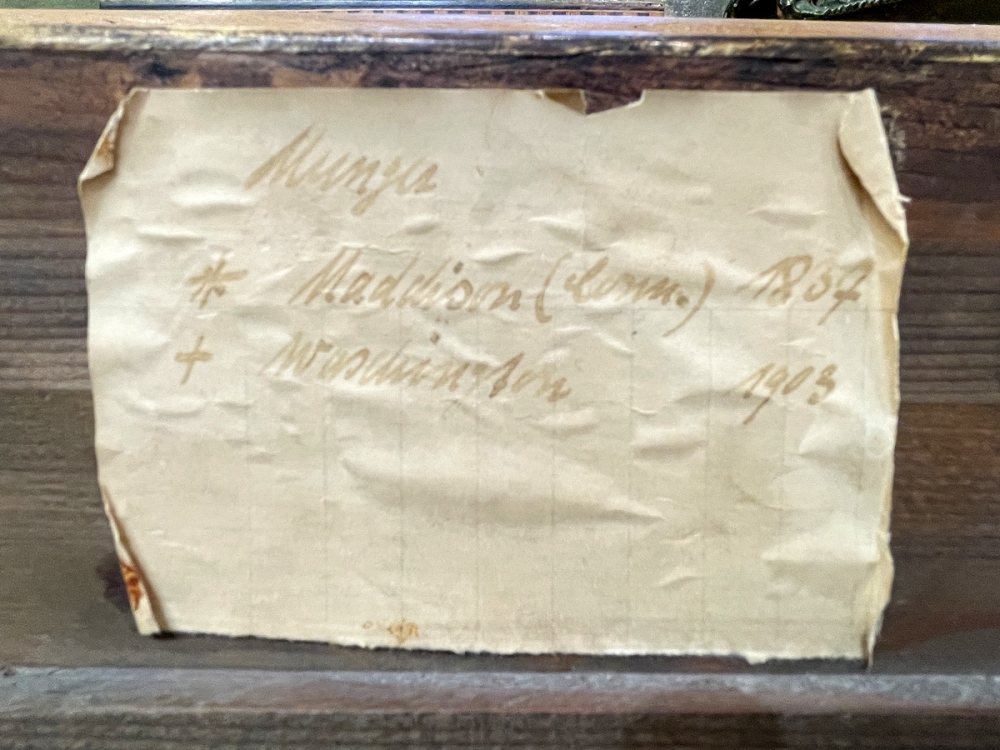 Munger
* Maddison (Conn.) 1837
+ Waschington 1903